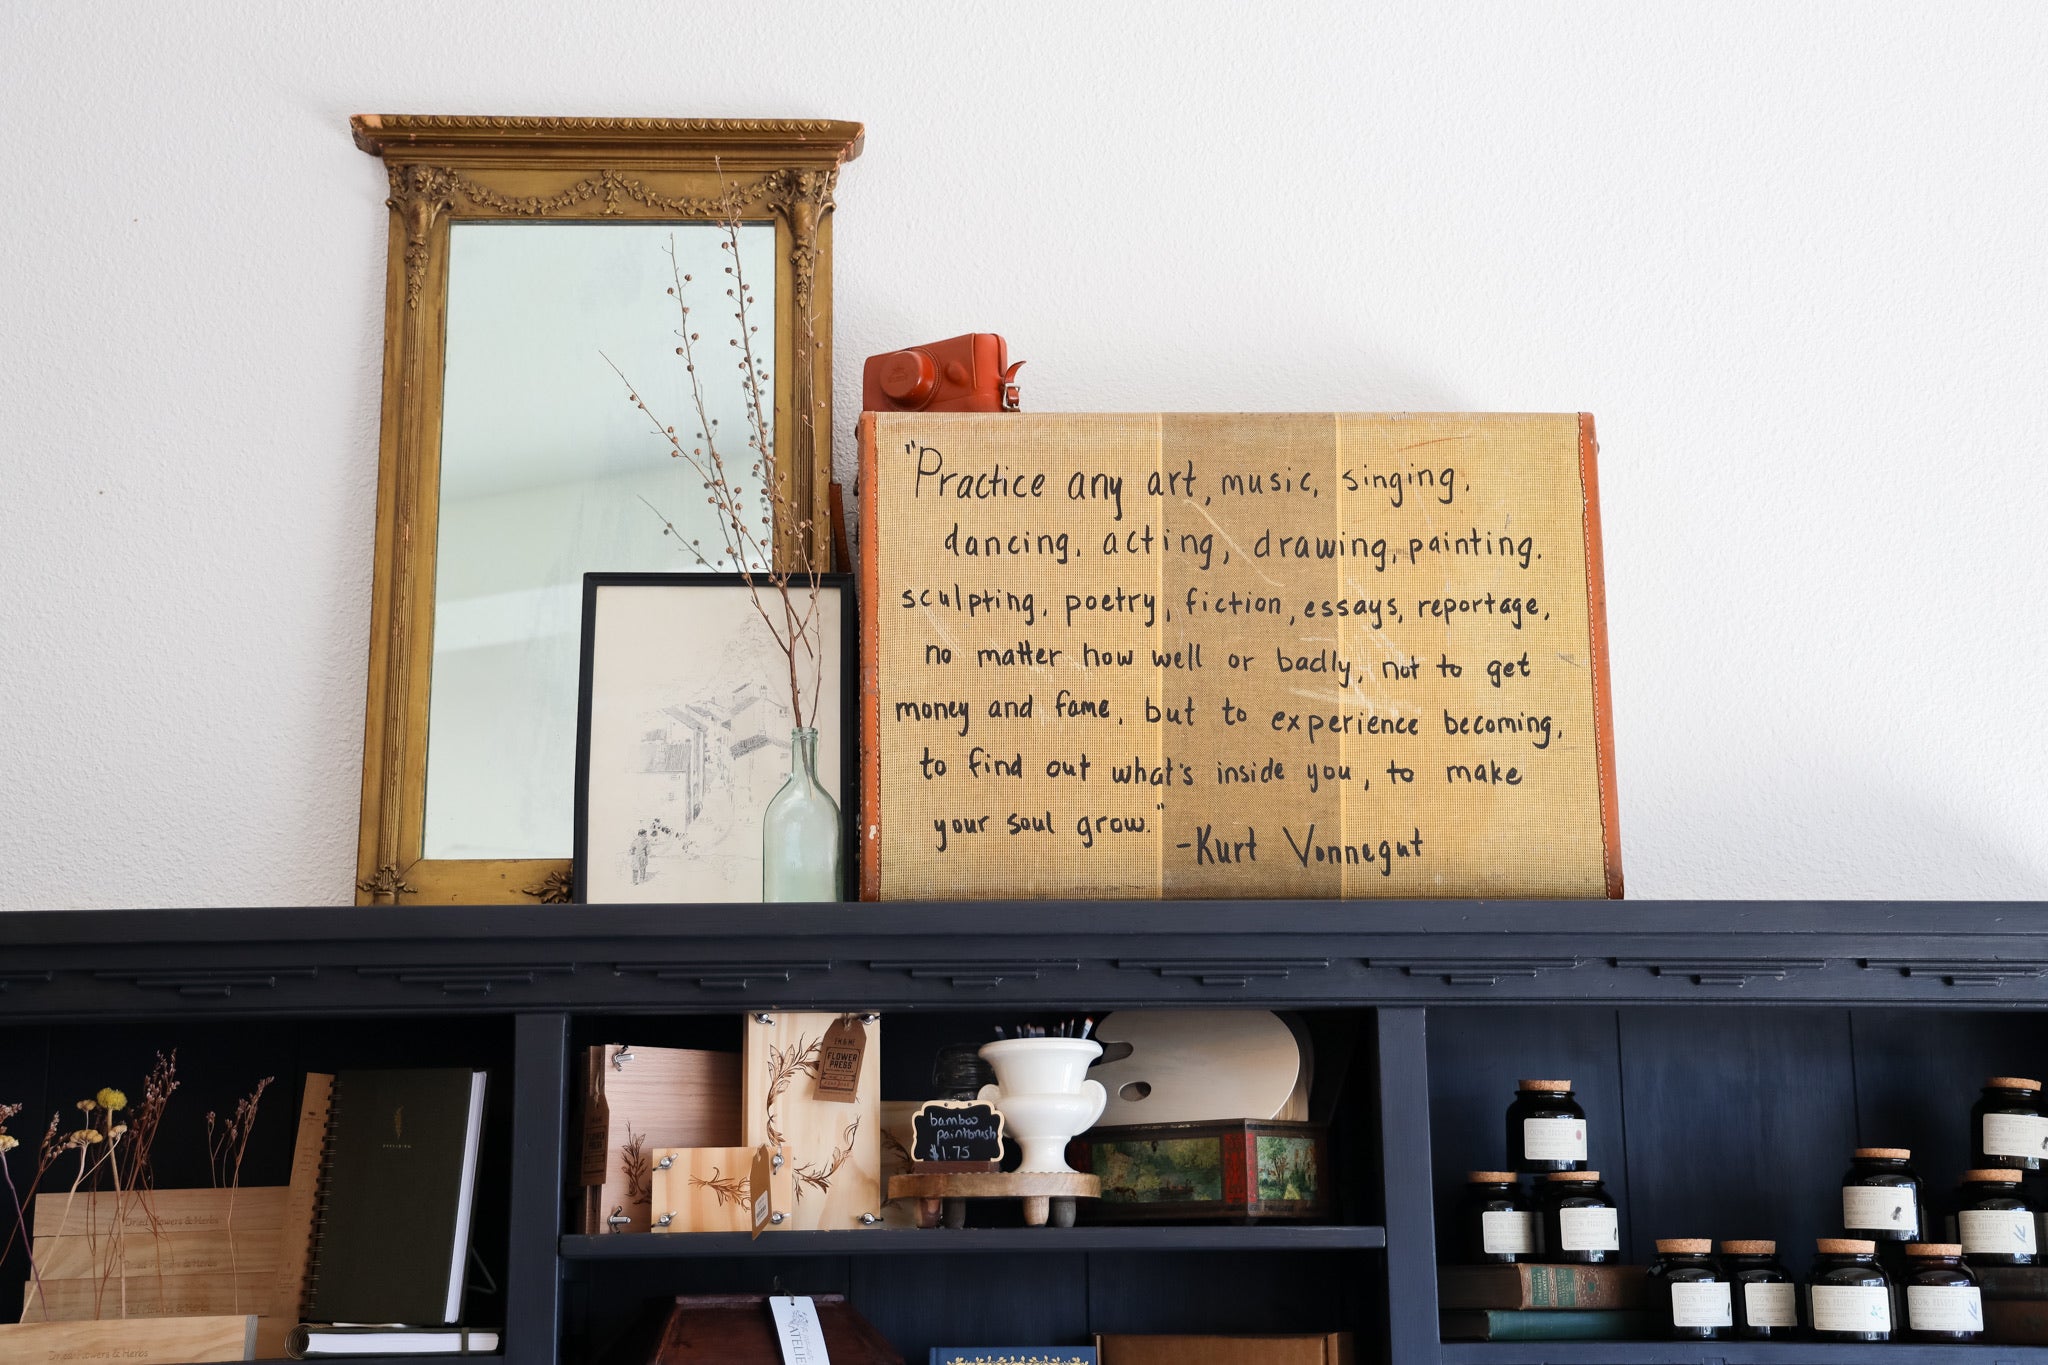 "Practice any art, music, singing,
dancing, acting, drawing, painting,
sculpting, poetry, fiction, essays, reportage,
no matter how well or badly, not to get
money and fame, but to experience becoming,
to find out what's inside you, to make
your soul grow."
-Kurt Vonnegut
FLOWER
PRESS
bamboo
paintbrush
$1.75
Dried Flowers & Herbs
Dried Flowers & Herbs
Dried Flowers & Herbs
Dried Flowers & Herbs
ATELIE